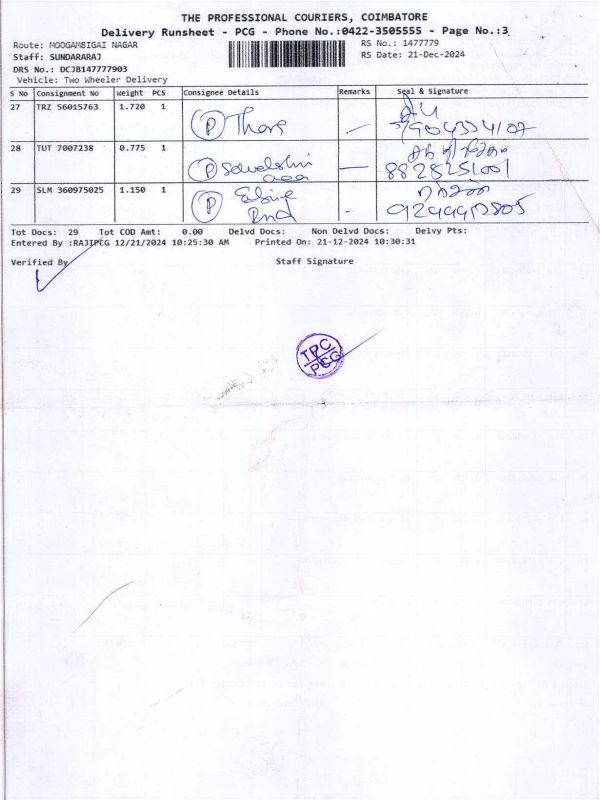 THE PROFESSIONAL COURIERS, COIMBATORE
Delivery Runsheet - PCG - Phone No.:0422-3505555 - Page No.:3
Route: MOOGAMBIGAI NAGAR
RS No.: 1477779
Staff: SUNDARARAJ
RS Date: 21-Dec-2024
DRS No.: DCJB147777903
Vehicle: Two Wheeler Delivery
S No Consignment No Weight PCS Consignee Details Remarks Seal & Signature
27 TRZ 56015763 1.720 1
P Thara
28 TUT 7007238 0.775 1
P
29 SLM 360975025 1.150 1
P
Tot Docs: 29 Tot COD Amt: 0.00 Delvd Docs: Non Delvd Docs: Delvy Pts:
Entered By :RAJIPCG 12/21/2024 10:25:30 AM Printed On: 21-12-2024 10:30:31
Verified By Staff Signature
TPC
PCG